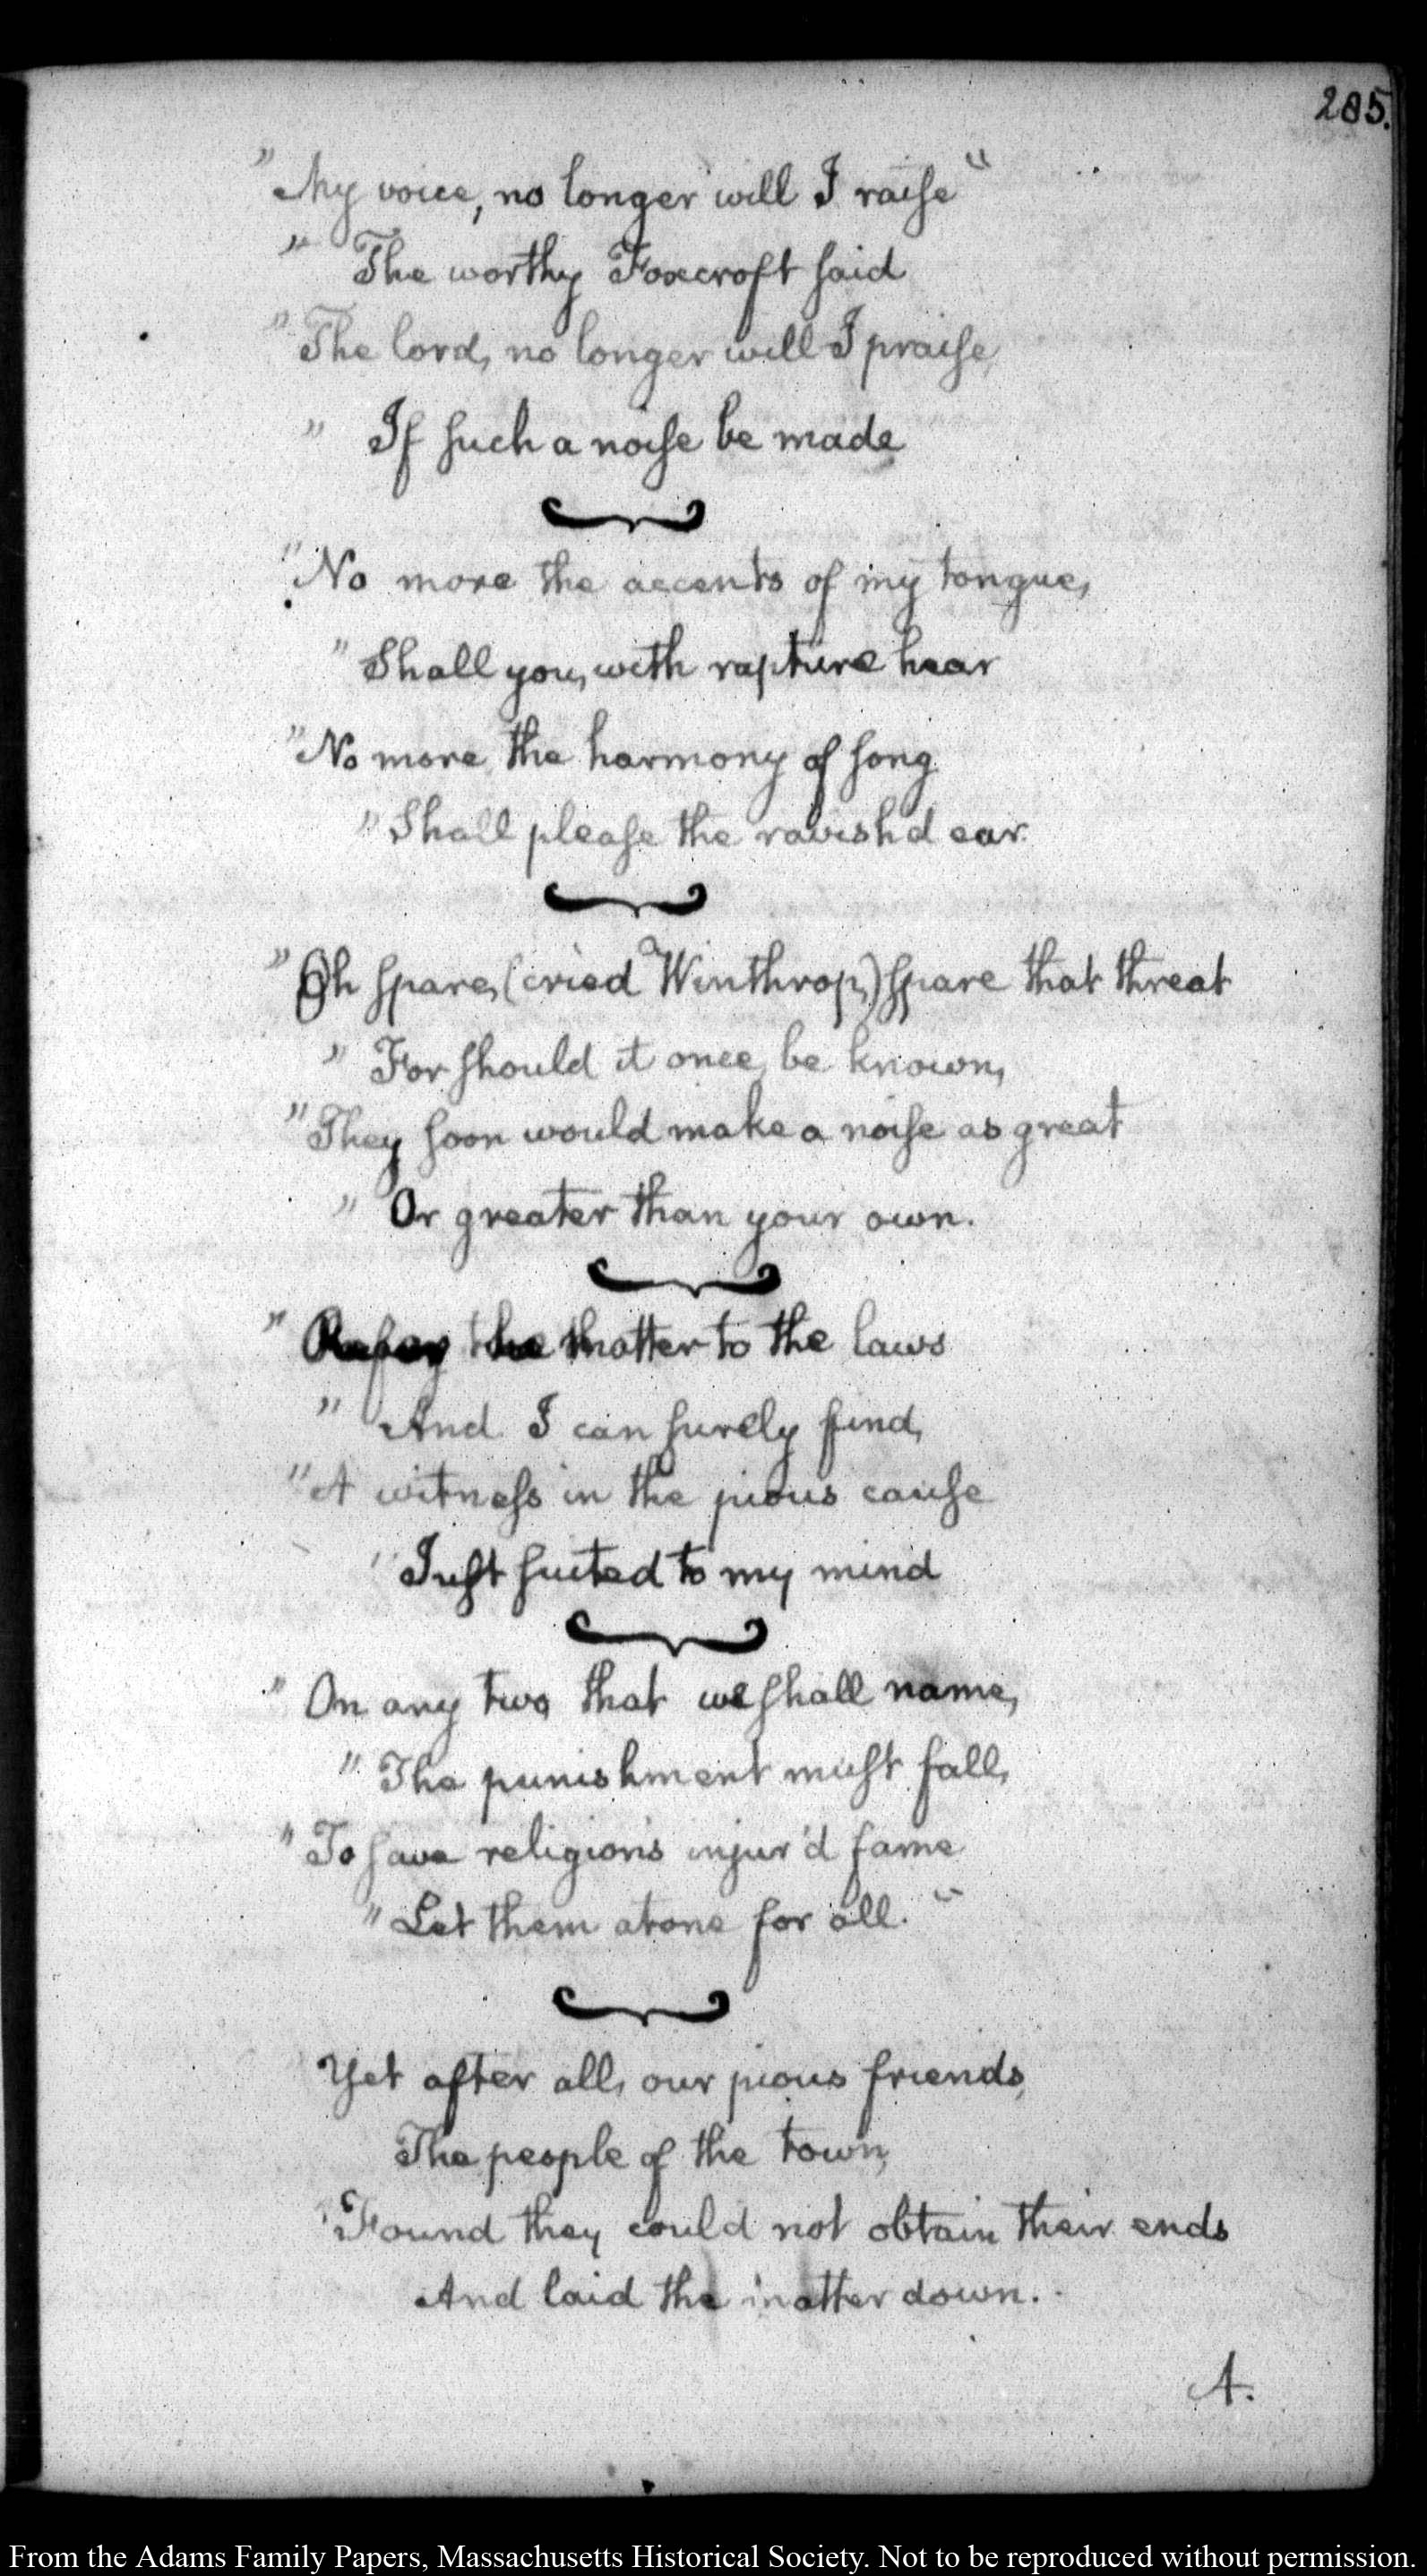 285.
"My voice, no longer will I raise"
" The worthy Foxcroft said
" The lord, no longer will I praise,
" If such a noise be made
"No more the accents of my tongue,
" Shall you, with rapture hear
"No more the harmony of song
" Shall please the ravishd ear.
" Oh spare, (cried Winthrop,) spare that threat
" For should it once, be known,
" They soon would make a noise as great
" Or greater than your own.
" Refer the matter to the laws
" And I can surely find,
" A witness in the pious cause
" Just suited to my mind
" On any two that we shall name,
" The punishment must fall,
" To save religion's injur'd fame
" Let them atone for all."
Yet after all, our pious friends,
The people of the town,
Found they could not obtain their ends
And laid the matter down.
A.
From the Adams Family Papers, Massachusetts Historical Society. Not to be reproduced without permission.